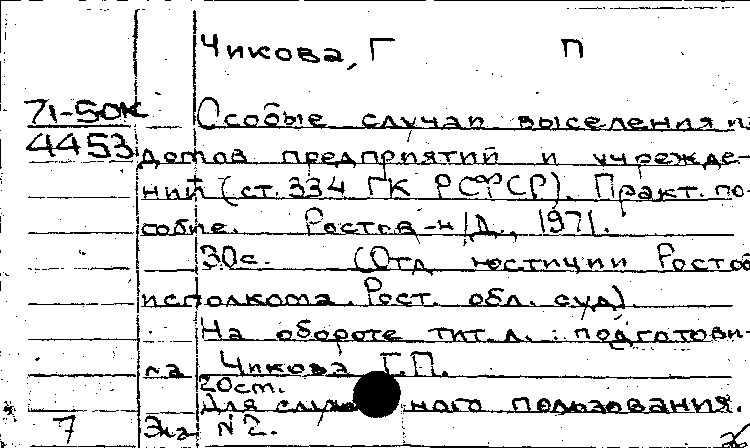 Чикова, Г П
71-50к
Особые случаи выселения из
4453
домов предприятий и учрежде-
ний (ст. 334 ГК РСФСР). Практ. по-
собие. Ростов-н/Д., 1971.
30с. (Отд юстиции Ростов
исполкома. Рост. обл. суд).
На обороте тит. л.: подготови-
ла Чикова Г.П.
20cm.
Для служебного пользования.
7 Экз №2.